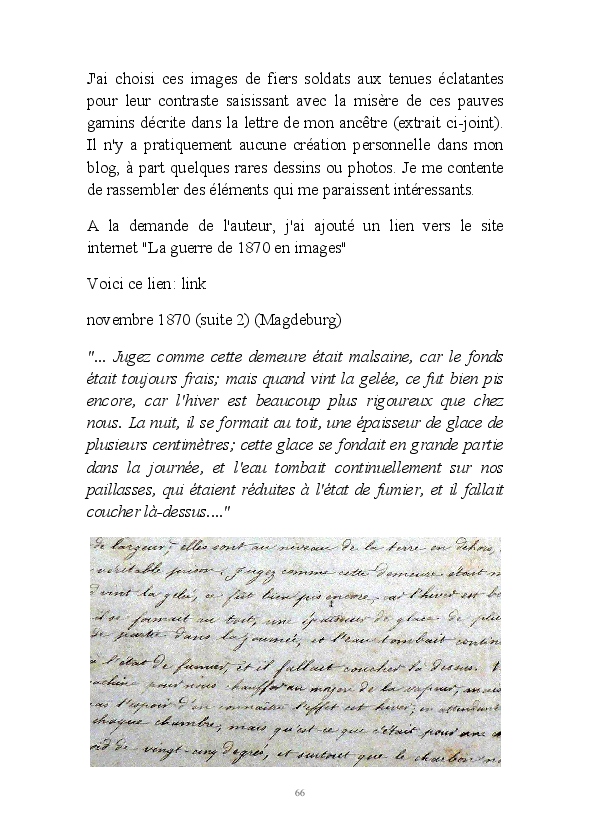 J'ai choisi ces images de fiers soldats aux tenues éclatantes
pour leur contraste saisissant avec la misère de ces pauves
gamins décrite dans la lettre de mon ancêtre (extrait ci-joint).
Il n'y a pratiquement aucune création personnelle dans mon
blog, à part quelques rares dessins ou photos. Je me contente
de rassembler des éléments qui me paraissent intéressants.
A la demande de l'auteur, j'ai ajouté un lien vers le site
internet "La guerre de 1870 en images"
Voici ce lien: link
novembre 1870 (suite 2) (Magdeburg)
"... Jugez comme cette demeure était malsaine, car le fonds
était toujours frais; mais quand vint la gelée, ce fut bien pis
encore, car l'hiver est beaucoup plus rigoureux que chez
nous. La nuit, il se formait au toit, une épaisseur de glace de
plusieurs centimètres; cette glace se fondait en grande partie
dans la journée, et l'eau tombait continuellement sur nos
paillasses, qui étaient réduites à l'état de fumier, et il fallait
coucher là-dessus...."
de largeur; elles sont au niveau de la terre en dehors,
véritable prison. Jugez comme cette demeure était
vint la gelée, ce fut bien pis encore, car l'hiver est
il se formait au toit, une épaisseur de glace de
partie dans la journée, et l'eau tombait
à l'état de fumier, et il fallait coucher là dessus.
pour nous chauffer au moyen de la vapeur, mais
pas l'espoir d'en connaître l'effet cet hiver; en attendant
chaque chambre, mais qu'est-ce que c'était pour une
froid de vingt-cinq degrés, et surtout que le charbon
66